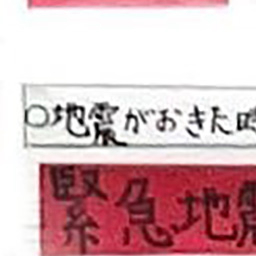 ○地震がおきた時
緊急地震